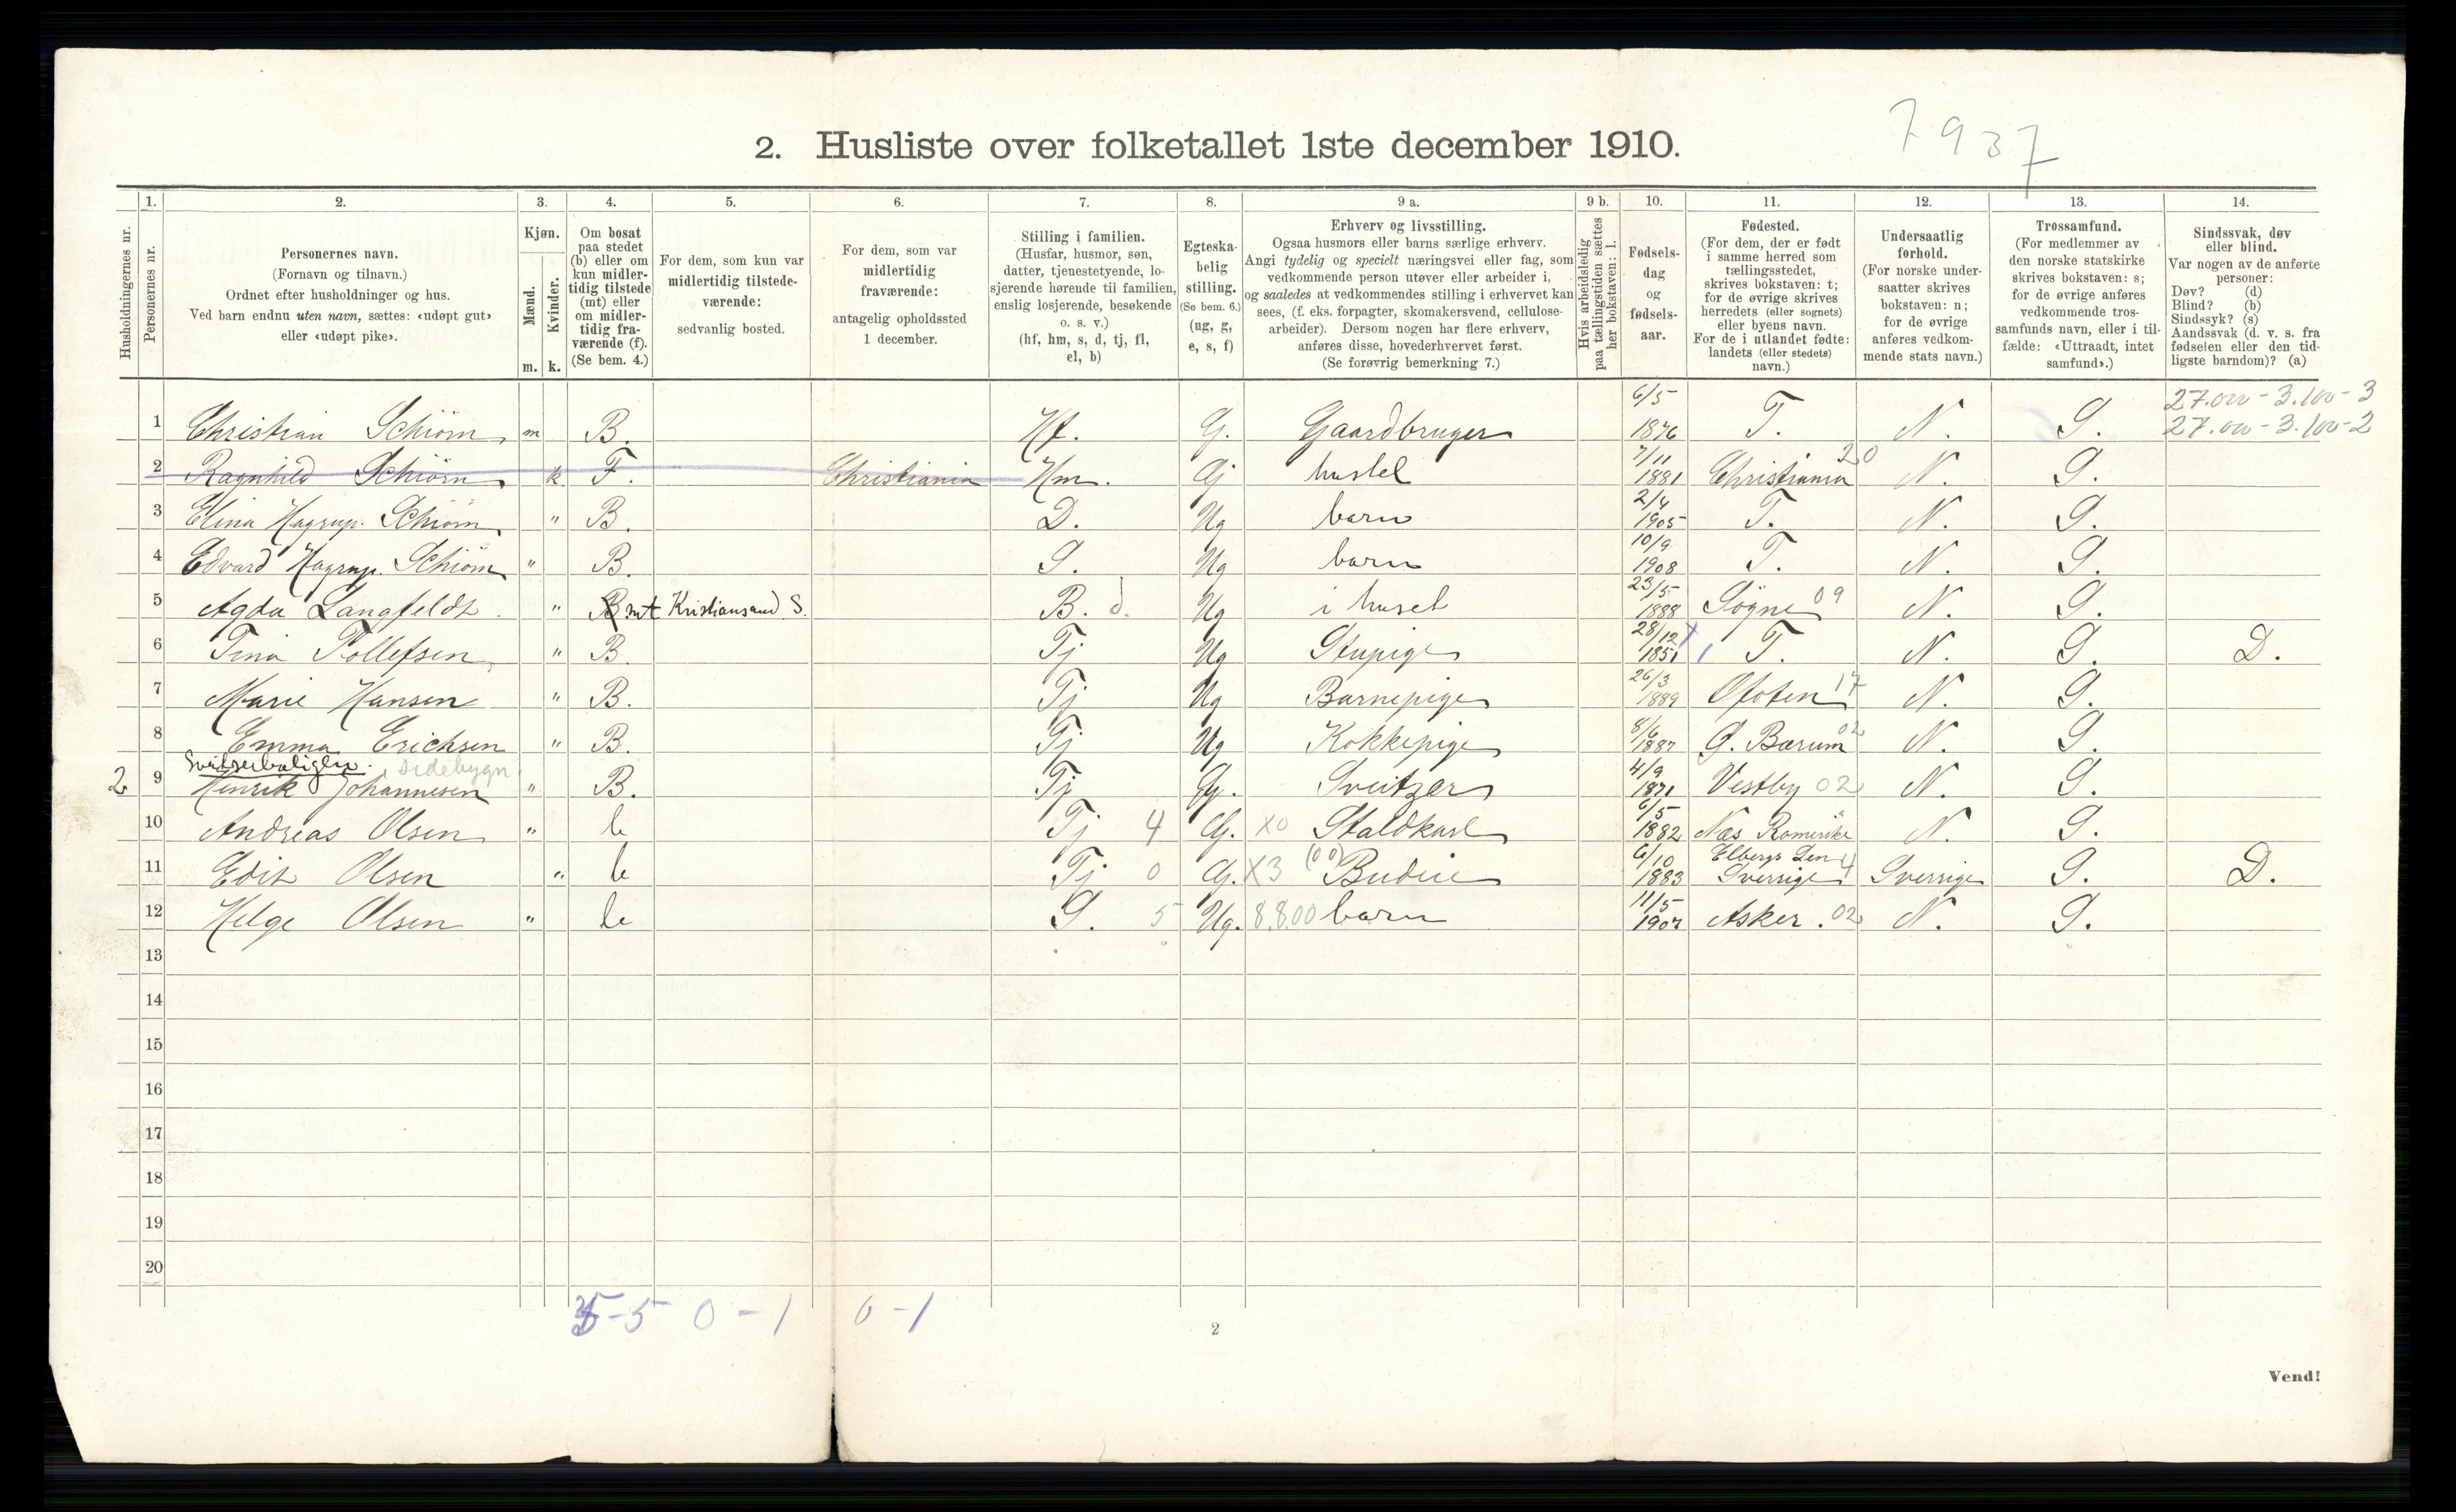 7937
2. Husliste over folketallet 1ste december 1910.
Husholdningernes nr.
1. Personernes nr.
2. Personernes navn.
(Fornavn og tilnavn.)
Ordnet efter husholdninger og hus.
Ved barn endnu uten navn, sættes: «udøpt gut»
eller «udøpt pike».
3. Kjøn.
Mænd. m.
Kvinder. k.
4. Om bosat
paa stedet
(b) eller om
kun midler-
tidig tilstede
(mt) eller
om midler-
tidig fra-
værende (f).
(Se bem. 4.)
5. For dem, som kun var
midlertidig tilstede-
værende:
sedvanlig bosted.
6. For dem, som var
midlertidig
fraværende:
antagelig opholdssted
1 december.
7. Stilling i familien.
(Husfar, husmor, søn,
datter, tjenestetyende, lo-
sjerende hørende til familien,
enslig losjerende, besøkende
o. s. v.)
(hf, hm, s, d, tj, fl,
el, b)
8. Egteska-
belig
stilling.
(Se bem. 6.)
(ug, g,
e, s, f)
9 a. Erhverv og livsstilling.
Ogsaa husmors eller barns særlige erhverv.
Angi tydelig og specielt næringsvei eller fag, som
vedkommende person utøver eller arbeider i,
og saaledes at vedkommendes stilling i erhvervet kan
sees, (f. eks. forpagter, skomakersvend, cellulose-
arbeider). Dersom nogen har flere erhverv,
anføres disse, hovederhvervet først.
(Se forøvrig bemerkning 7.)
9 b. Hvis arbeidsledig
paa tællingstiden sættes
her bokstaven: l.
10. Fødsels-
dag
og
fødsels-
aar.
11. Fødested.
(For dem, der er født
i samme herred som
tællingsstedet,
skrives bokstaven: t;
for de øvrige skrives
herredets (eller sognets)
eller byens navn.
For de i utlandet fødte:
landets (eller stedets)
navn.)
12. Undersaatlig
forhold.
(For norske under-
saatter skrives
bokstaven: n;
for de øvrige
anføres vedkom-
mende stats navn.)
13. Trossamfund.
(For medlemmer av
den norske statskirke
skrives bokstaven: s;
for de øvrige anføres
vedkommende tros-
samfunds navn, eller i til-
fælde: «Uttraadt, intet
samfund».)
14. Sindssvak, døv
eller blind.
Var nogen av de anførte
personer:
Døv? (d)
Blind? (b)
Sindssyk? (s)
Aandssvak (d. v. s. fra
fødselen eller den tid-
ligste barndom)? (a)
27.000 - 3.100 - 3
27.000 - 3.100 - 2
1 Christian Schiørn m B. Hf. G. Gaardbruger 6/5 1876 T. N. S.
2 Ragnhild Schiørn k F. Christiania Hm. G hustel 7/11 1881 Christiania 20 N. S.
3 Elina Hagrup Schiørn " B. D. Ug barn 2/4 1905 T. N. S.
4 Edvard Hagrup Schiørn " B. S. Ug barn 10/9 1908 T. N. S.
5 Agda Langfeldt " B mt Kristiansand S. B. d. Ug i huset 23/5 1888 Søgne 09 N. S.
6 Tina Tollefsen " B. Tj Ug Stupige 28/12 1851 T. N. S. D.
7 Marie Hansen " B. Tj Ug Barnepige 26/3 1889 Ofoten 17 N. S.
8 Emma Erichsen " B. Tj Ug Kokkepige 8/6 1887 Ø. Bærum 02 N. S.
Sveitserboligen. sidebygn.
2 9 Henrik Johannesen " B. Tj G. Sveitzer 4/9 1871 Vestby 02 N. S.
10 Andreas Olsen " b Tj 4 G. X0 Staldkarl 6/5 1882 Næs Romerike N. S.
11 Edit Olsen " b Tj 0 G. X3 (00) Budeie 6/10 1883 Elbergs Len Sverrige Sverrige S. D.
12 Helge Olsen " b S. 5 Ug. 8.8.00 barn 11/5 1907 Asker. 02 N. S.
13
14
15
16
17
18
19
20
5-5 0-1 0-1
2
Vend!